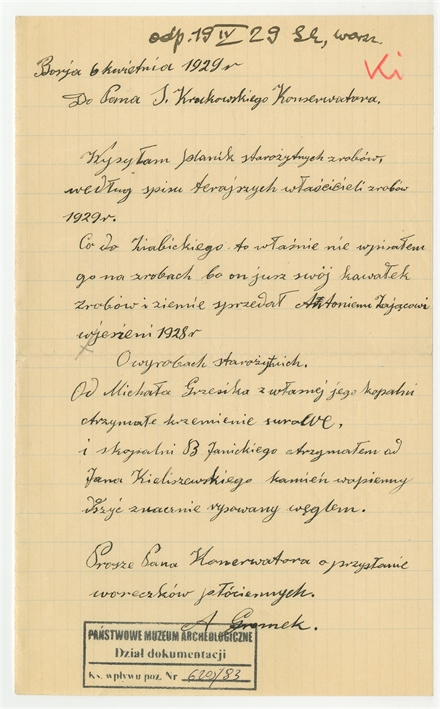 odp. 19 IV 29 Sk, warsz.
Ki
Borja 6 kwietnia 1929 r
Do Pana S. Krukowskiego Konserwatora.
Wysyłam planik starożytnych zrobów,
według spisu terajszych właścicieli zrobów
1929 r.
Co do Ziabickiego to właśnie nie wpisałem
go na zrobach bo on jusz swój kawałek
zrobów i ziemie sprzedał Antoniemu Zającowi
wjesieni 1928 r
O wyrobach starożytnich.
Od Michała Grzesika z własnej jego kopalni
otrzymałe krzemienie surowe,
i skopalni B Janickiego otrzymałem od
Jana Kieliszewskiego kamień wapienny
dszyć znacznie rysowany węglem.
Prosze Pana Konerwatora o przysłanie
woreczków płóciennych.
A Gromek.
PAŃSTWOWE MUZEUM ARCHEOLOGICZNE
Dział dokumentacji
Ks. wpływu poz. Nr 620/83